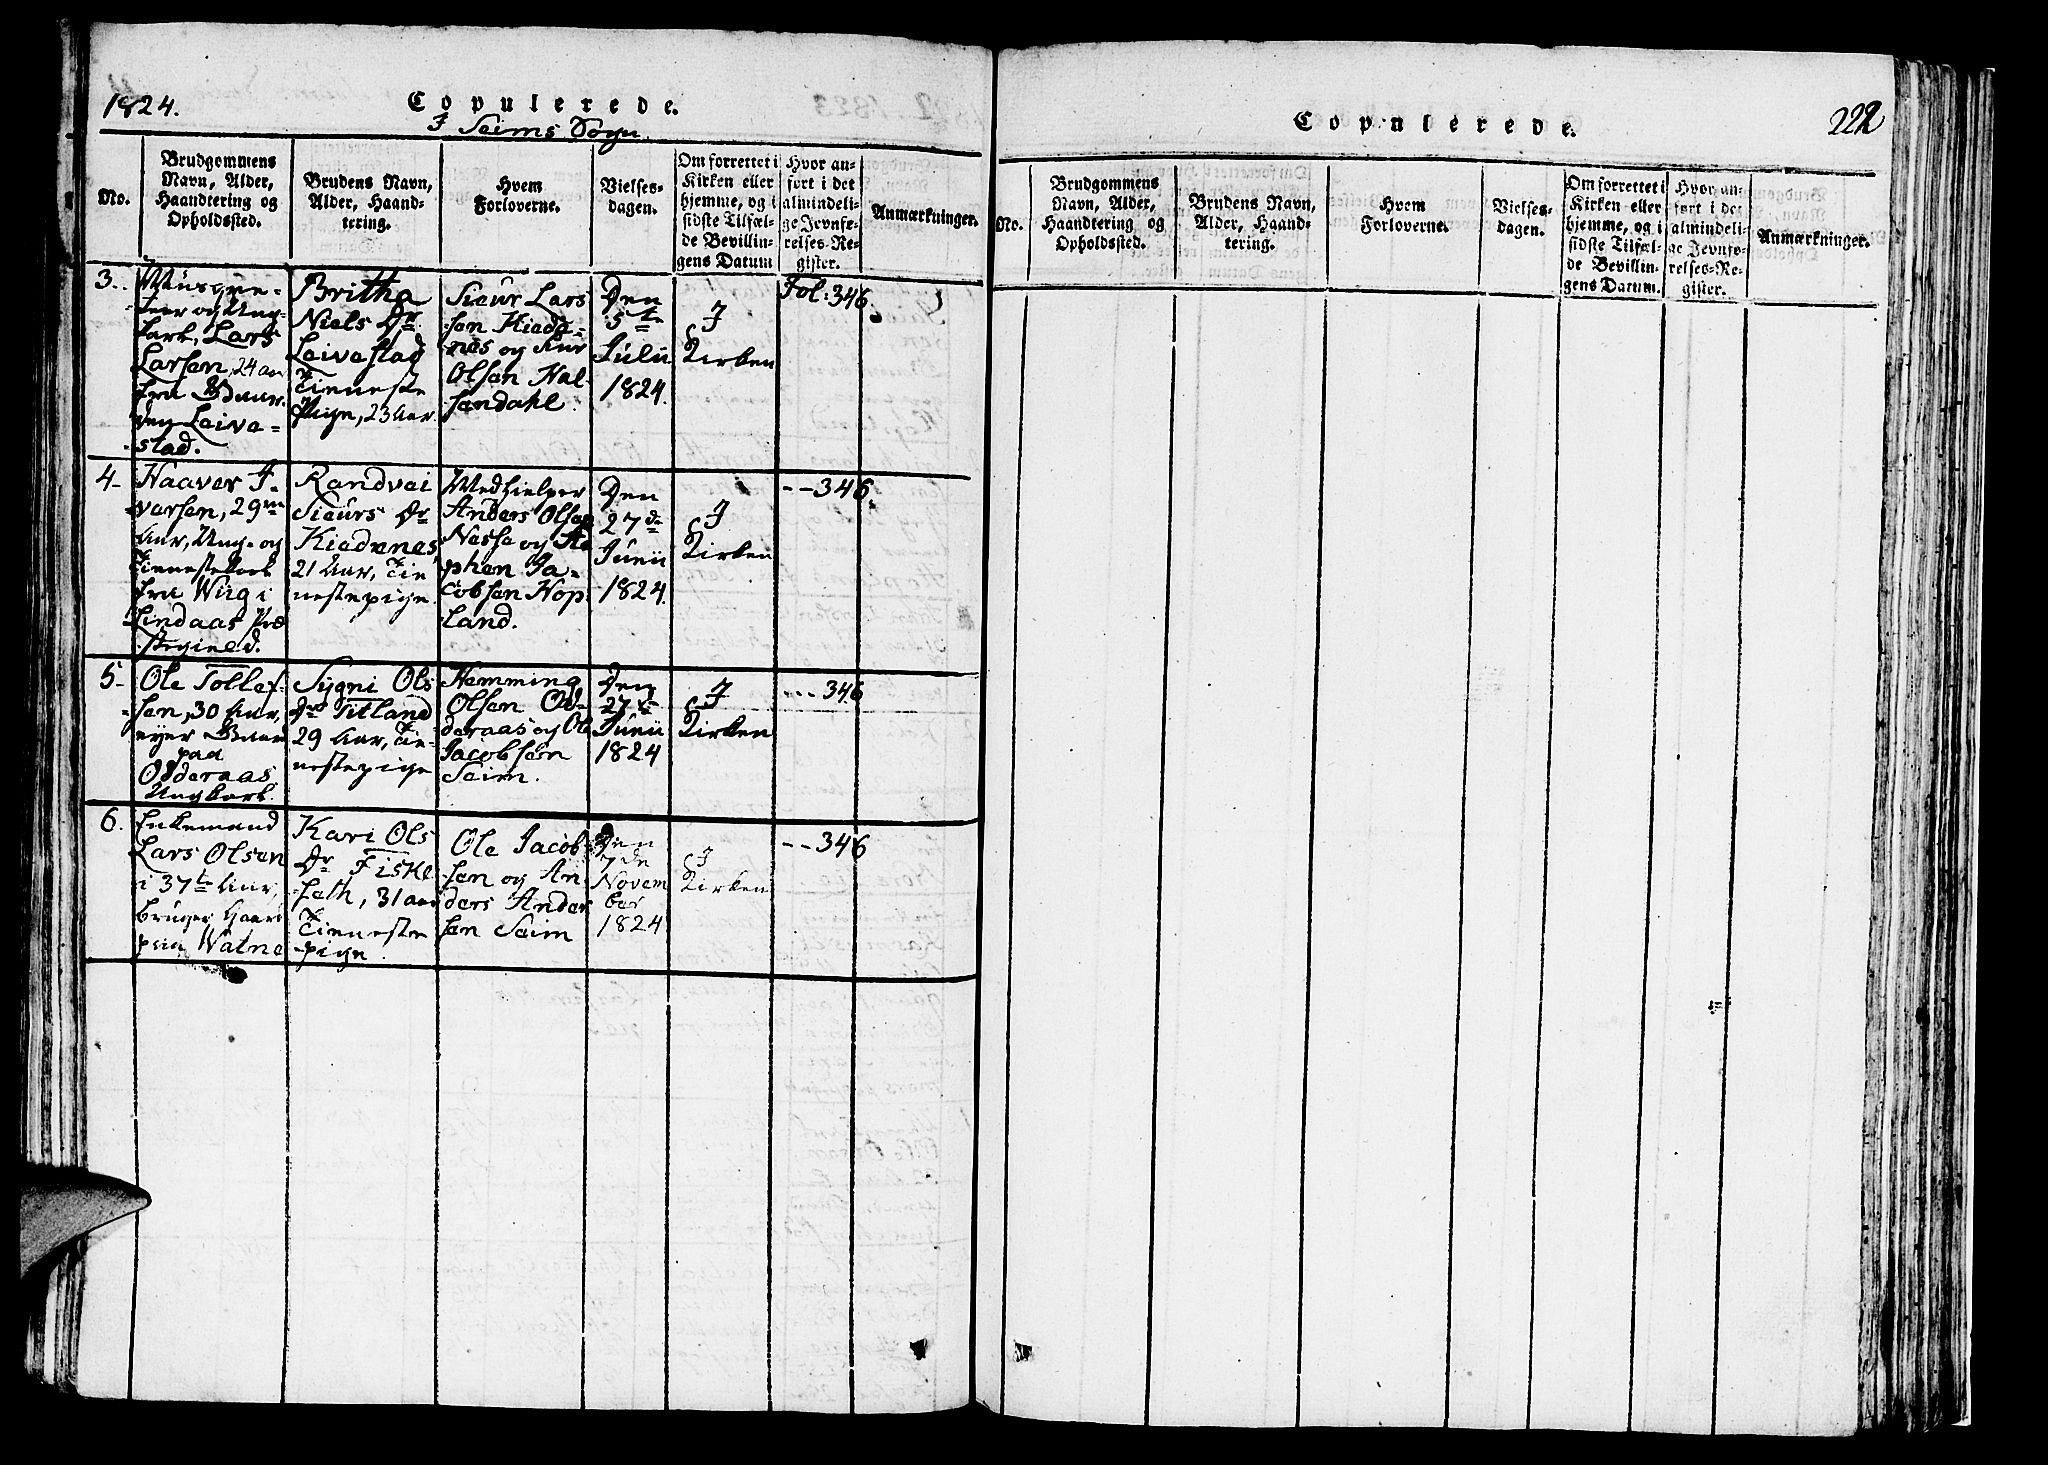 1824.
Copulerede.
I Seims Sogn.
No.
Brudgommens
Navn, Alder,
Haandtering og
Opholdssted.
Brudens Navn,
Alder, Haand-
tering.
Hvem
Forloverne.
Vielses-
dagen.
Om forrettet i
Kirken eller
hjemme, og i
sidste Tilfæl-
de Bevillin-
gens Datum
Hvor an-
ført i det
almindeli-
ge Jevnfø-
relses-Re-
gister.
Anmærkninger.
3.
Musque-
teer og Ung-
karl, Lars
Larsen, 24 aar
fra
Leiva-
stad.
Britha
Niels Dr
Leivestad
Tieneste
Pige, 23 Aar.
Siour Lars
sen Kieda-
nes og Siur
Olsen Hal-
sendahl.
Den
5te
Julii
1824.
I
Kirken
Fol: 346.
4-
Haaver I-
varsen, 29
Aar, Ung- og
Tienestekarl
fra Wiig i
Lindaas Præ
stegield.
Randvei
Siours Dr
Kiedanes,
21 Aar, Tie-
nestepige.
Medhielper
Anders Olsen
Nesse og Ste
phen Ja-
cobsen Hop-
land.
Den
27de
Junii
1824.
I
Kirken
-- 346.
5-
Ole Tollef-
sen, 30 Aar,
eyer Bruug
paa
Odderaas
Ungkarl.
Sygni Ols
Dr Titland
29 Aar, Tie-
nestepige
Hemming
Olsen Od-
deraas og Ole
Jacobsen
Seim.
Den
27de
Junii
1824
I
Kirken
--- 346
6.
Enkemand
Lars Olsen
i 37te Aar,
bruger Gaard
paa Watne
Kari Ols
Dr Fiske
seth, 31 aar
Tieneste
pige.
Ole Jacob
sen og An
ders Ander
sen Seim
Den
7de
Novem
ber
1824
I
Kirken
-- 346
Copulerede.
222
No.
Brudgommens
Navn, Alder,
Haandtering og
Opholdssted.
Brudens Navn,
Alder, Haand-
tering.
Hvem
Forloverne.
Vielses-
dagen.
Om forrettet i
Kirken eller
hjemme, og i
sidste Tilfæl-
de Bevillin-
gens Datum.
Hvor an-
ført i det
almindeli-
ge Jevnfø-
relses-Re-
gister.
Anmærkninger.